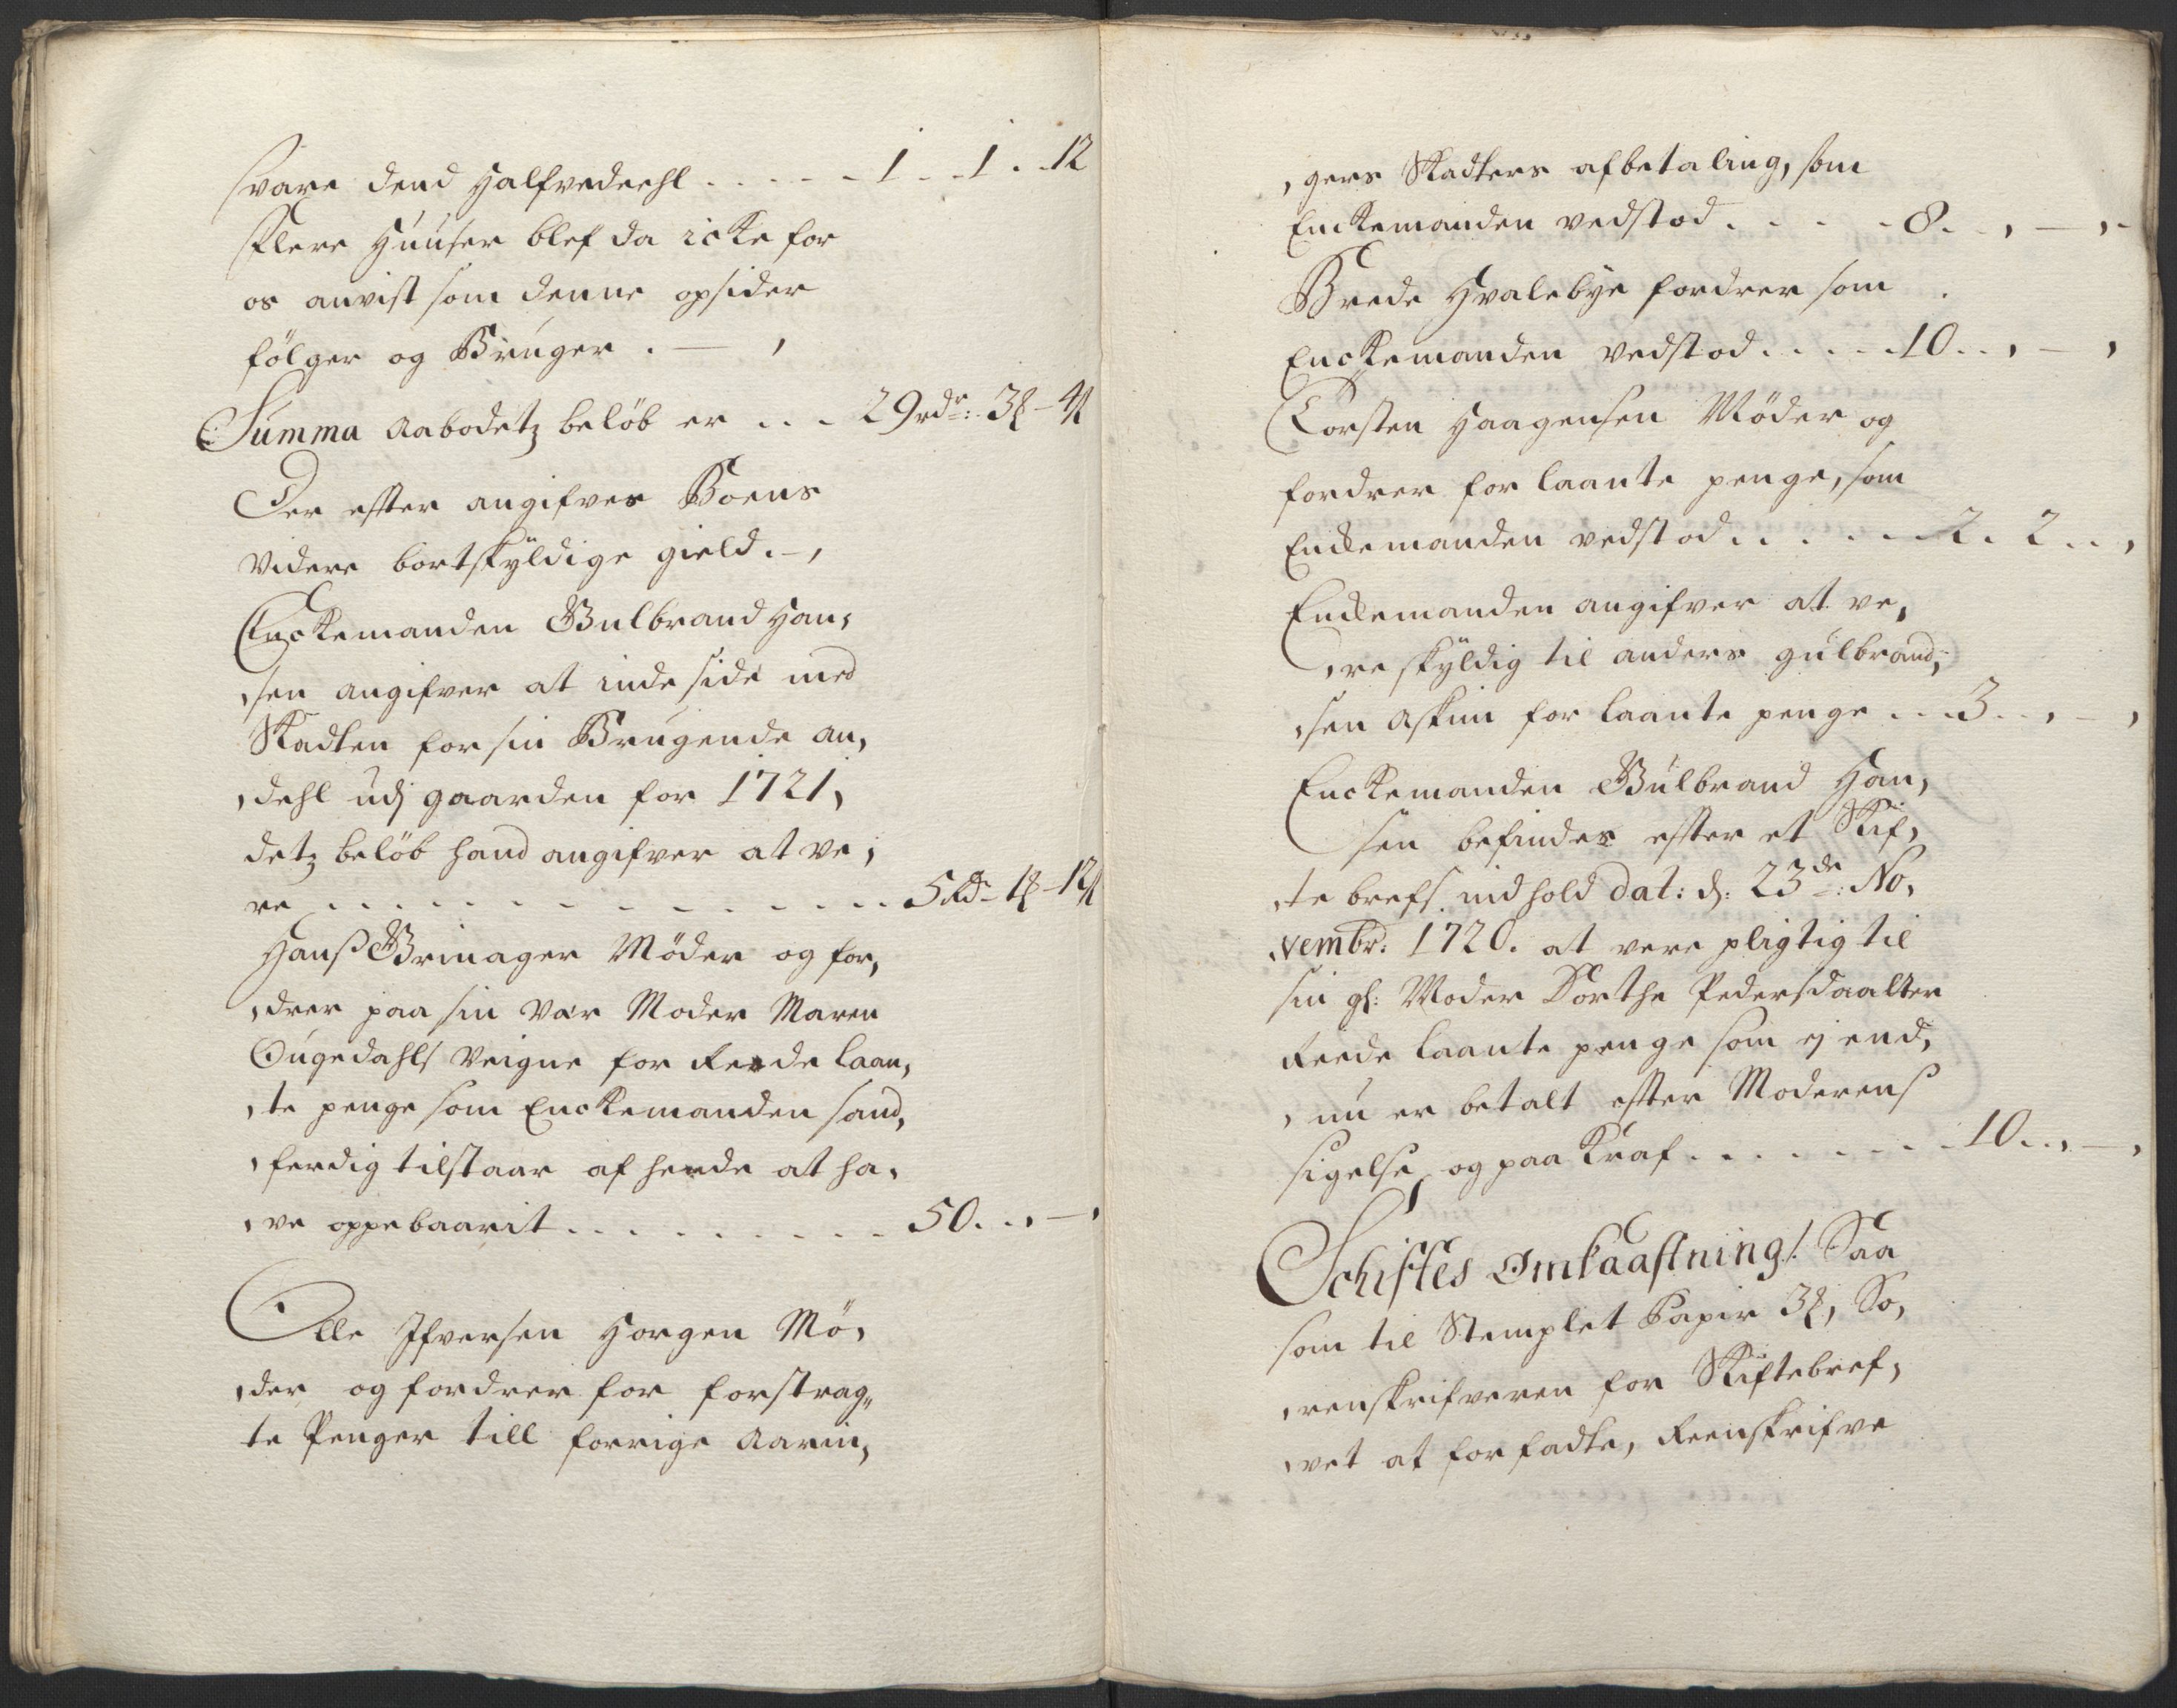 svare dend Halfvedeehl . . . . . 1 . . 1 . 12
Flere Huuser blef da icke for
os anvist som denne opsider
følger og Bruger . — ,
Summa Aabodetz beløb er . . . 29 rdr: 3ß - 4ß
Der effter angifves Boens
videre bortskyldige gield. - ,
Enckemanden Gulbrand Han,
,sen angifver at inde side med
Skadten for sin Brugende an,
,dehl udj gaarden for 1721,
detz beløb hand angifver at ve,
re . . . . . . . . . . . . 5 Rdr 1ß - 12ß
Hanß Brinager Møder og for,
,drer paa sin Vær Moder Maren
veigne for Rede laan,
,te penge som Enckemanden sand,
,ferdig tilstaar af hende at ha,
,ve oppebaarit . . . . . . . . . 50 . . , — ,
Olle Ifversen Horgen Mø,
,der og fordrer for forstrag,,
te Penger till forrige Aarin,
,gers Skadters afbetaling, som
Enckemanden vedstod . . . . . 8 . . , — , -
Brede Hvalebye fordrer som
Enckemanden vedstod . . . . . 10 . . , — ,
Torsten Haagensen Møder og
fordrer for laante penge, som
Enckemanden vedstod . . . . . . 2 . 2 . . ,
Enckemanden angifver at ve,
,re skyldig til anders gulbrand,
,sen Askim for laante penge . . . 3 . . , — ,
Enckemanden Gulbrand Han,
sen befindes effter et Skif,
,te brefs indhold dat: d: 23de: No,
,vembr: 1720. at vere pligtig til
sin gl: Moder Dorthe Pedersdaatter
Reede laante penge som ej end,
,nu er betalt effter Moderens
sigelse og paa Kraf . . . . . . . 10 . . , — ,
Schiftes Omkaastning /: Saa
som til Stemplet Papir 3ß, So,
,renskrifveren for Skiftebref,
,vet at forfadte, Reenskrifve